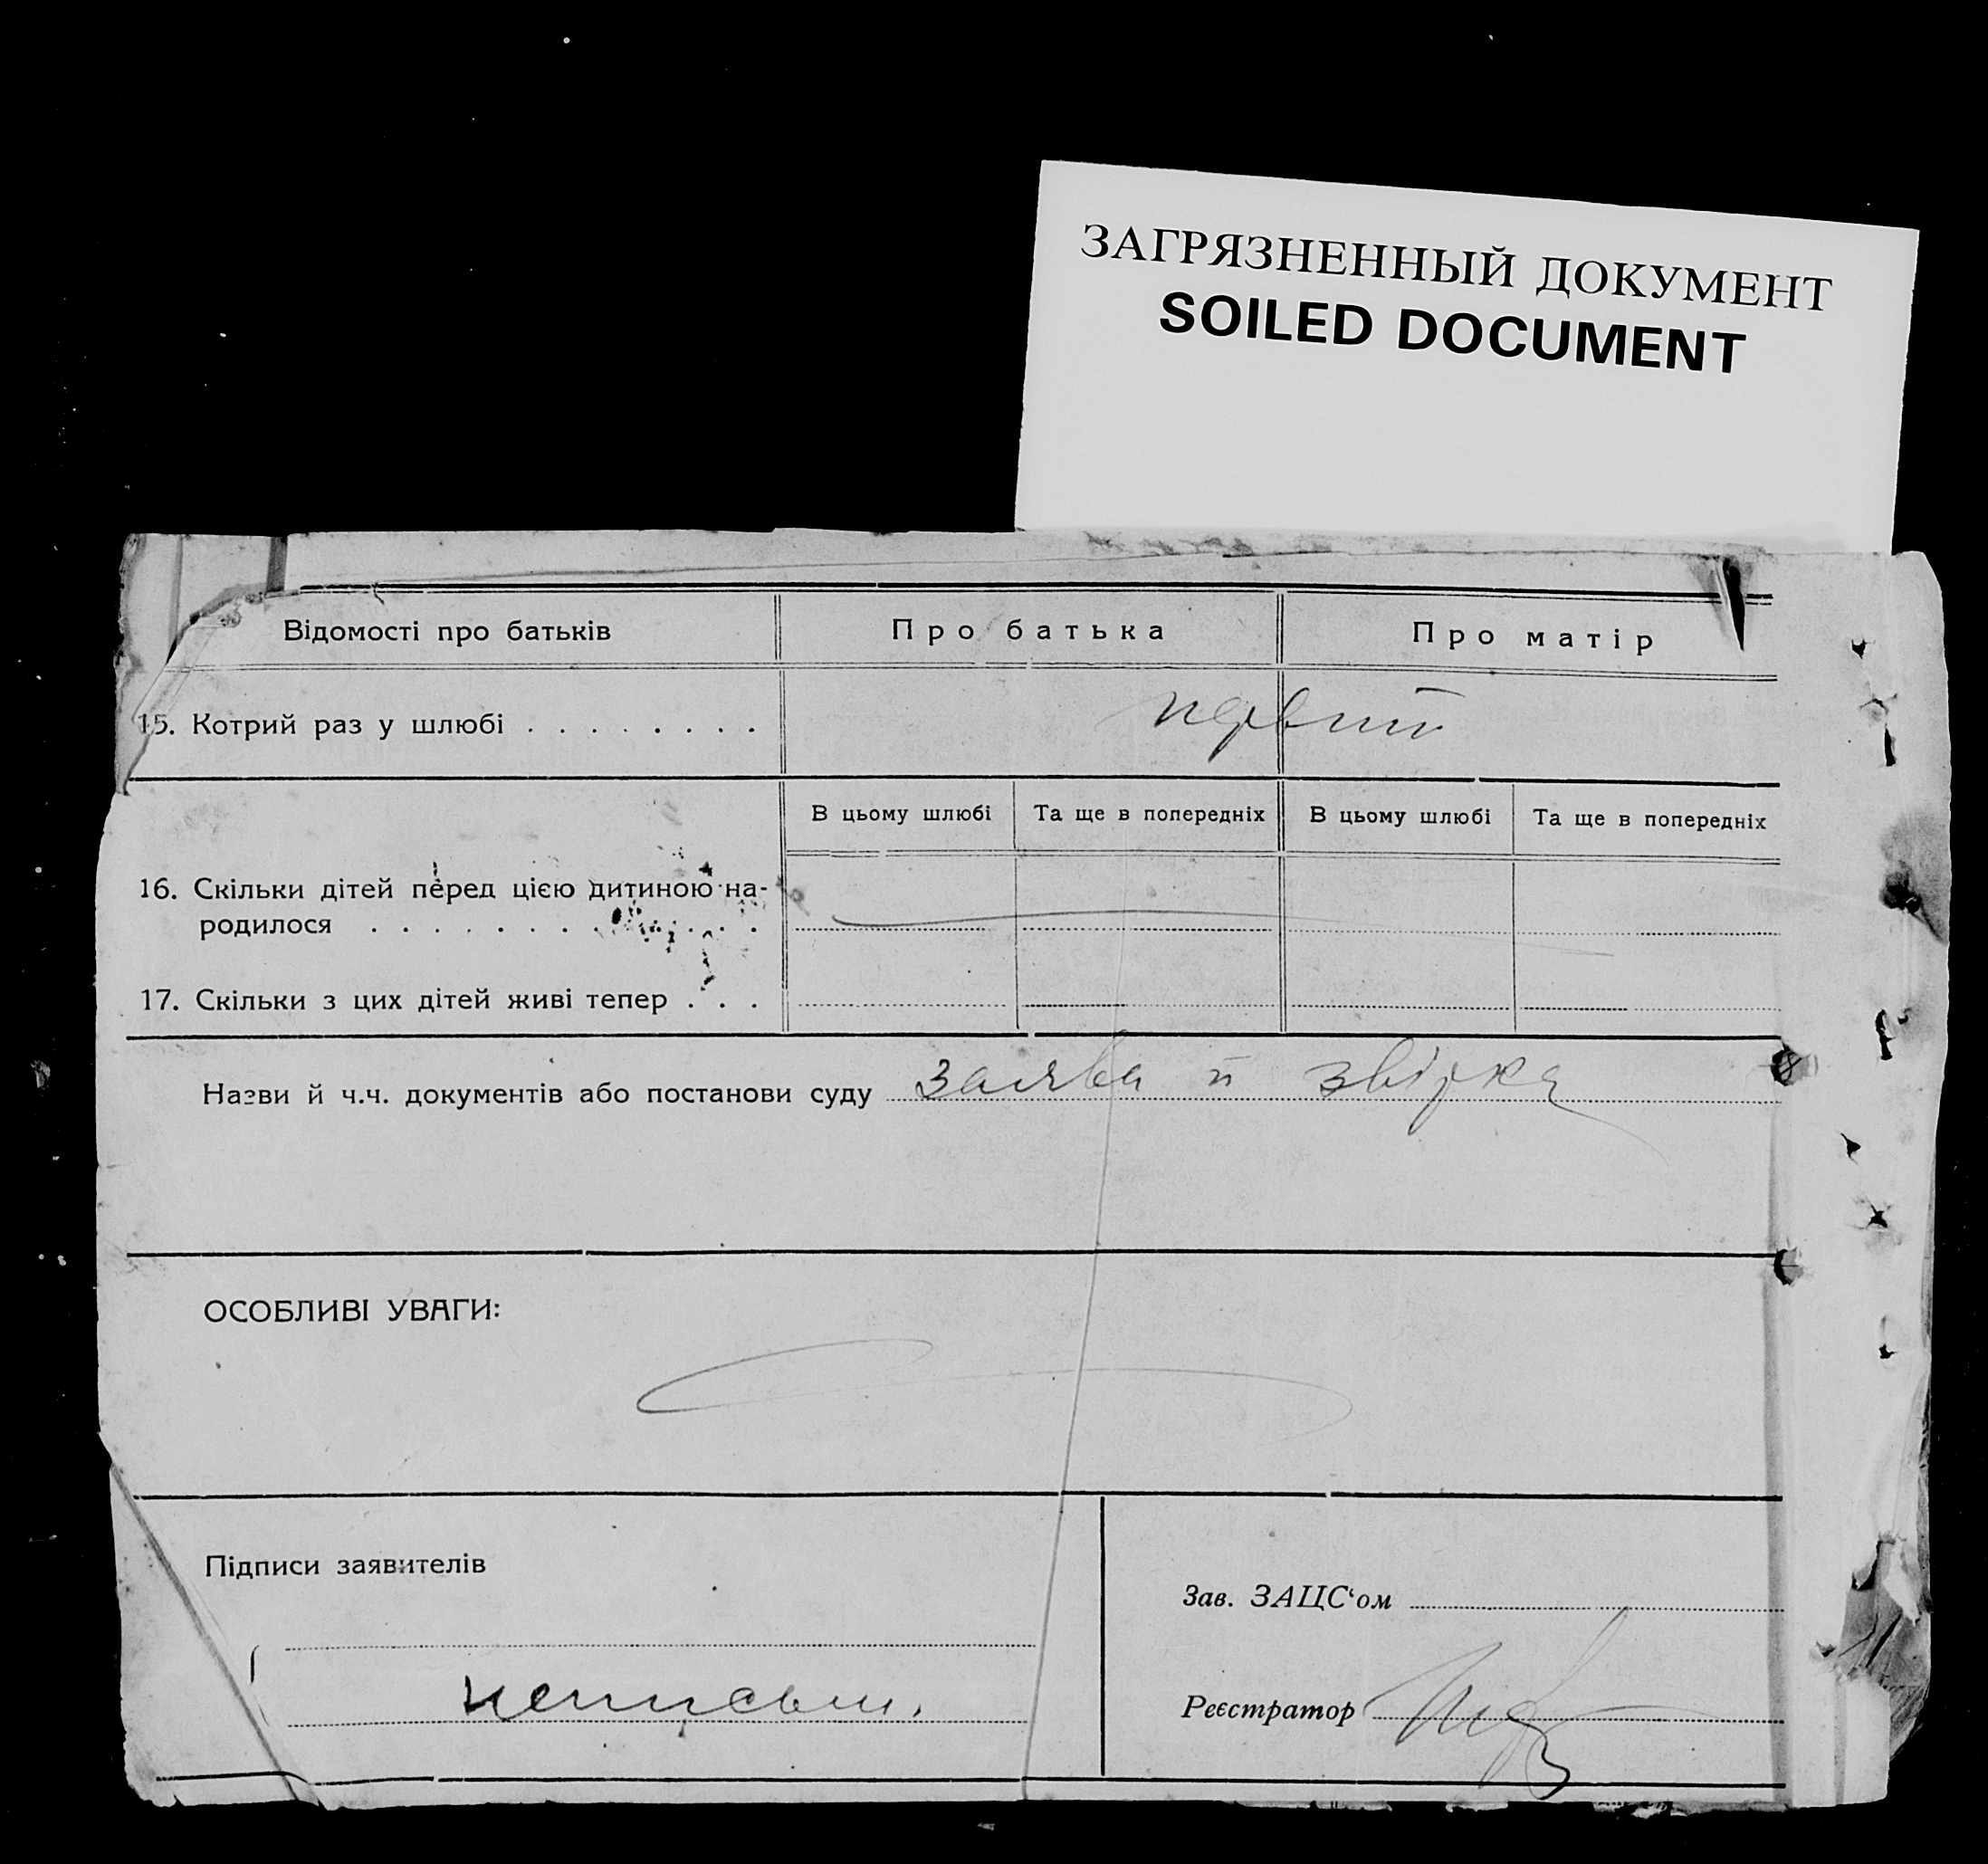 ЗАГРЯЗНЕННЫЙ ДОКУМЕНТ
SOILED DOCUMENT
Відомості про батьків
Про батька
Про матір
15. Котрий раз у шлюбі . . . . . . . .
первий
В цьому шлюбі
Та ще в попередніх
В цьому шлюбі
Та ще в попередніх
16. Скільки дітей перед цією дитиною на-
родилося . . . . . . . . . . . . . .
17. Скільки з цих дітей живі тепер . . .
Назви й ч.ч. документів або постанови суду заява й звірка
ОСОБЛИВІ УВАГИ:
Підписи заявителів
Зав. ЗАЦС‘ом
Реєстратор